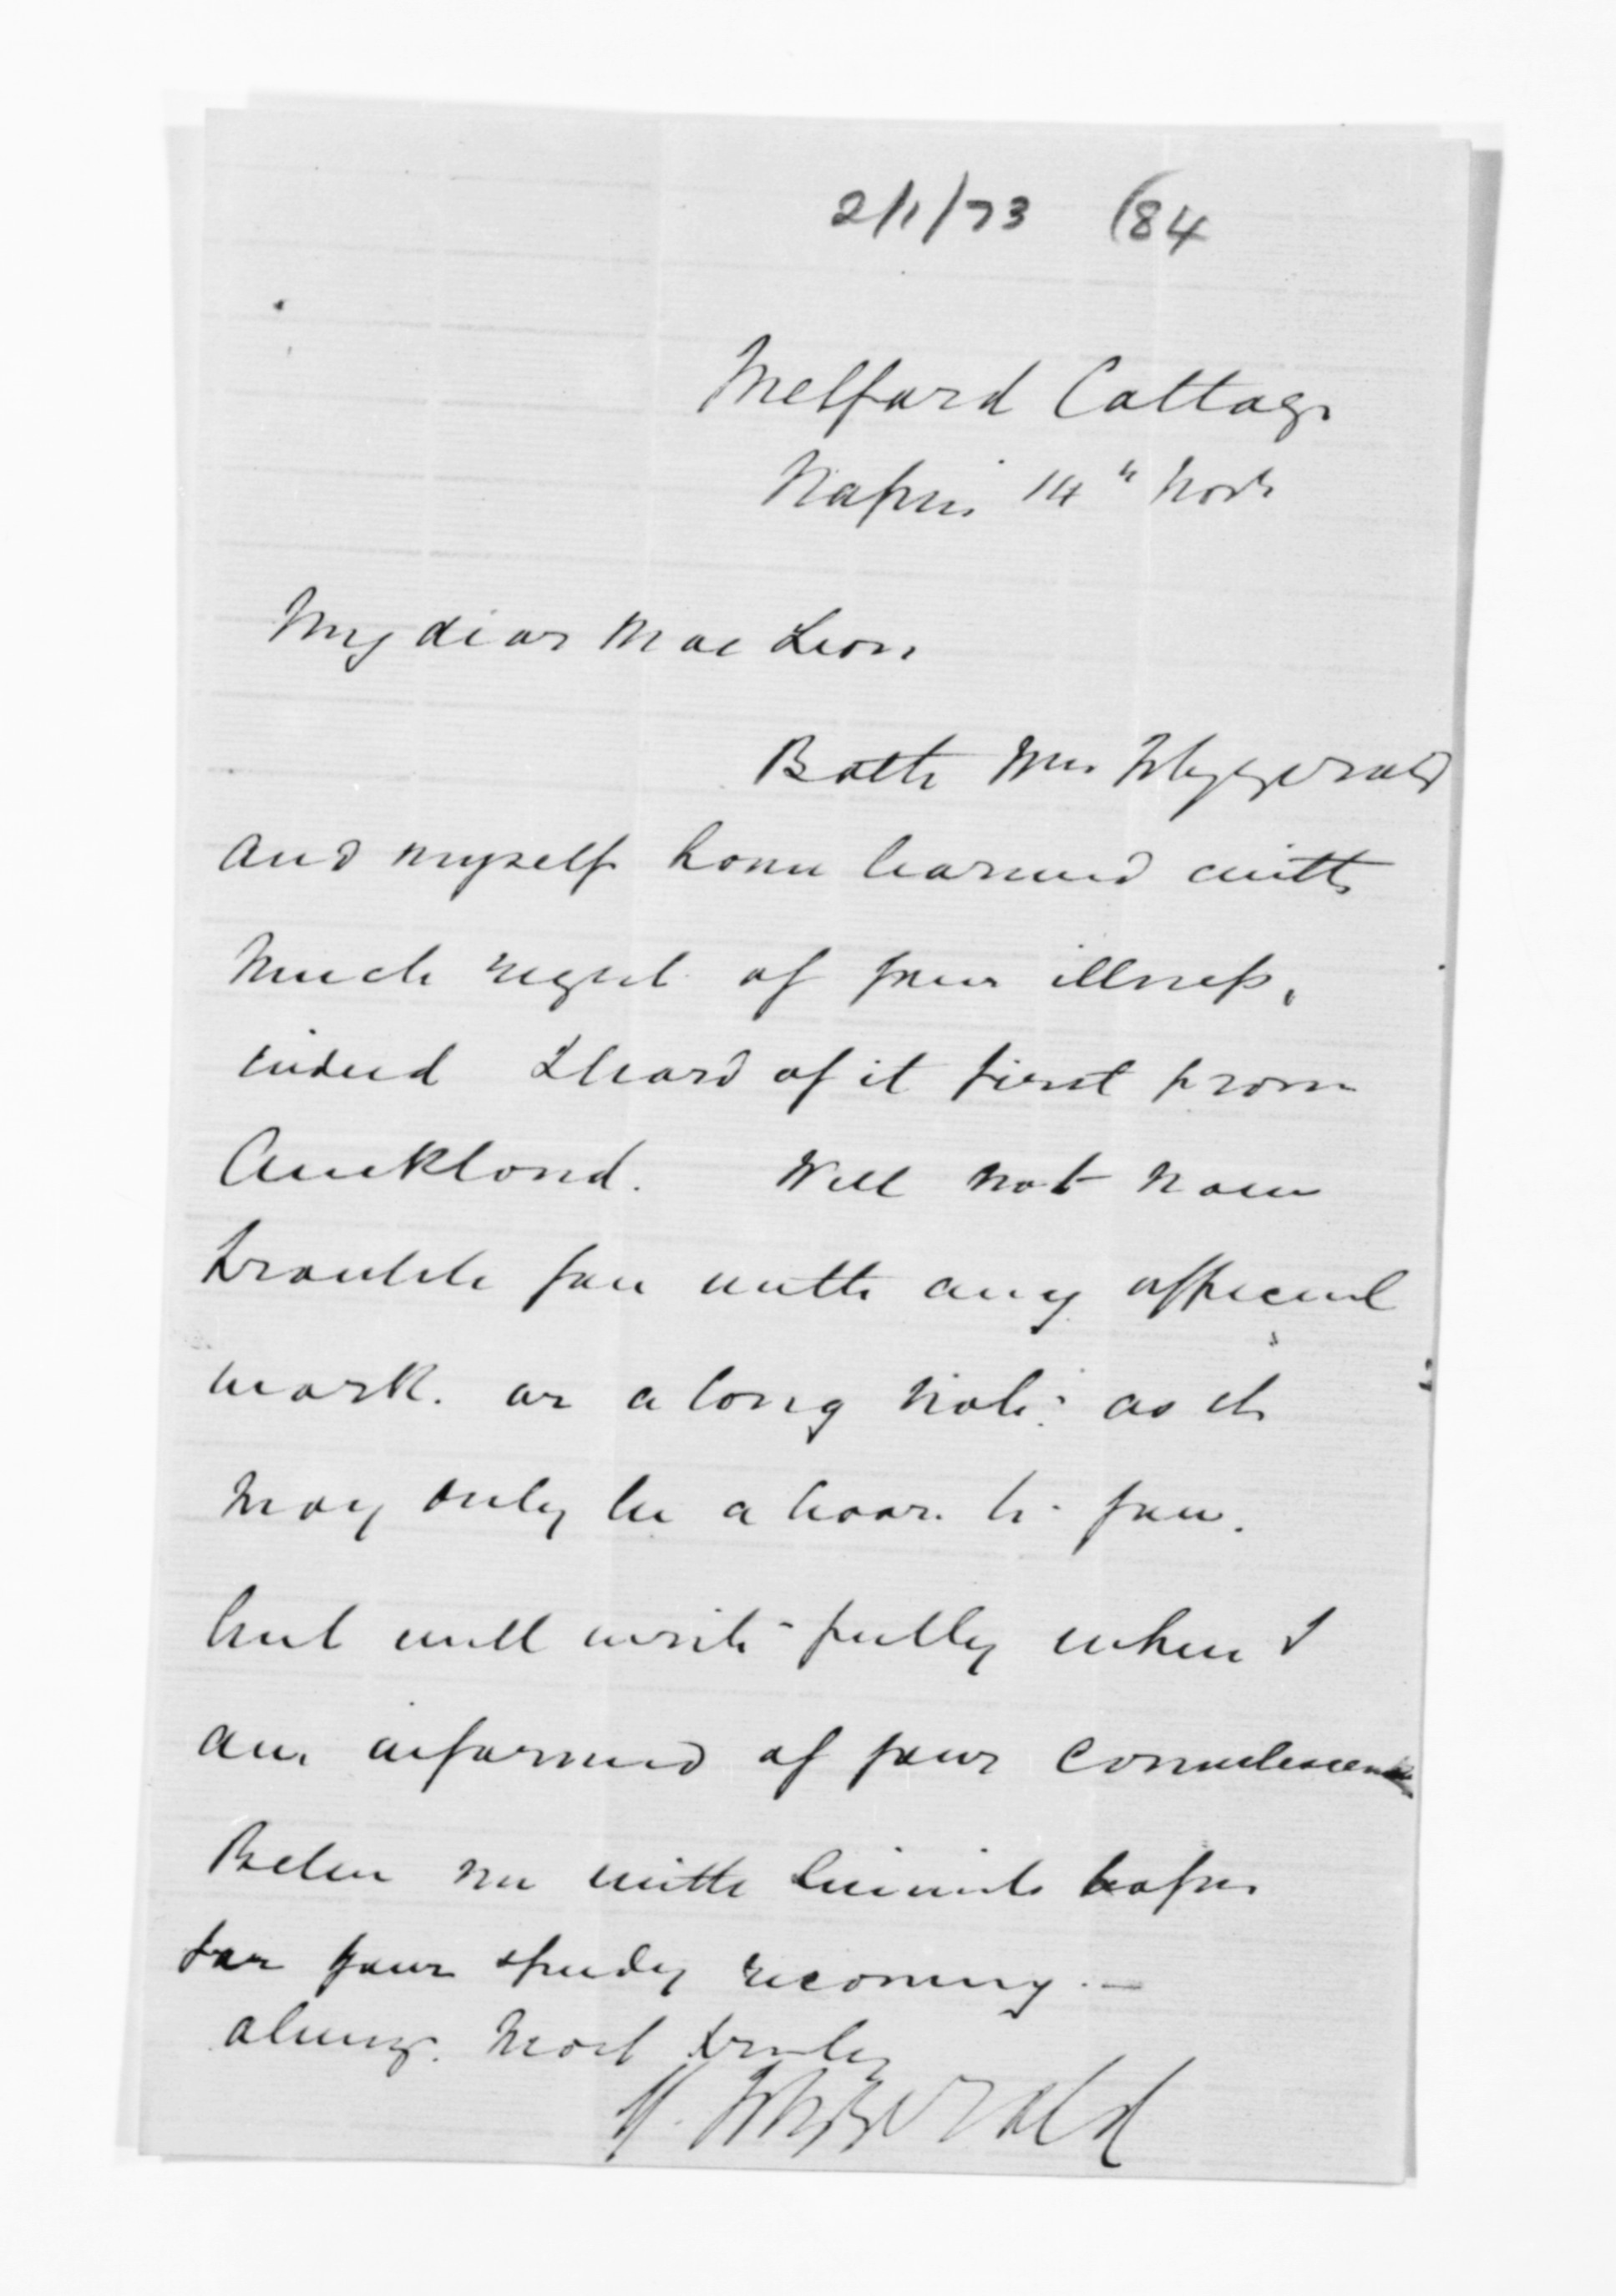 2/1/73 (84
Melford Cottage
Napier 14th Novr
My dear Mac Lean
Both Mrs Fitzgerald
and myself have learned with
much regret of your illness,
indeed I heard of it first from
Auckland. Will not now
trouble you with any official
work. or a long note: as it
may only be a boar. to you.
but will write fully when I
am informed of your convalescence
Believe me with sincerest hopes
for your speedy recovery. —
always. Most truly
Fitzgerald